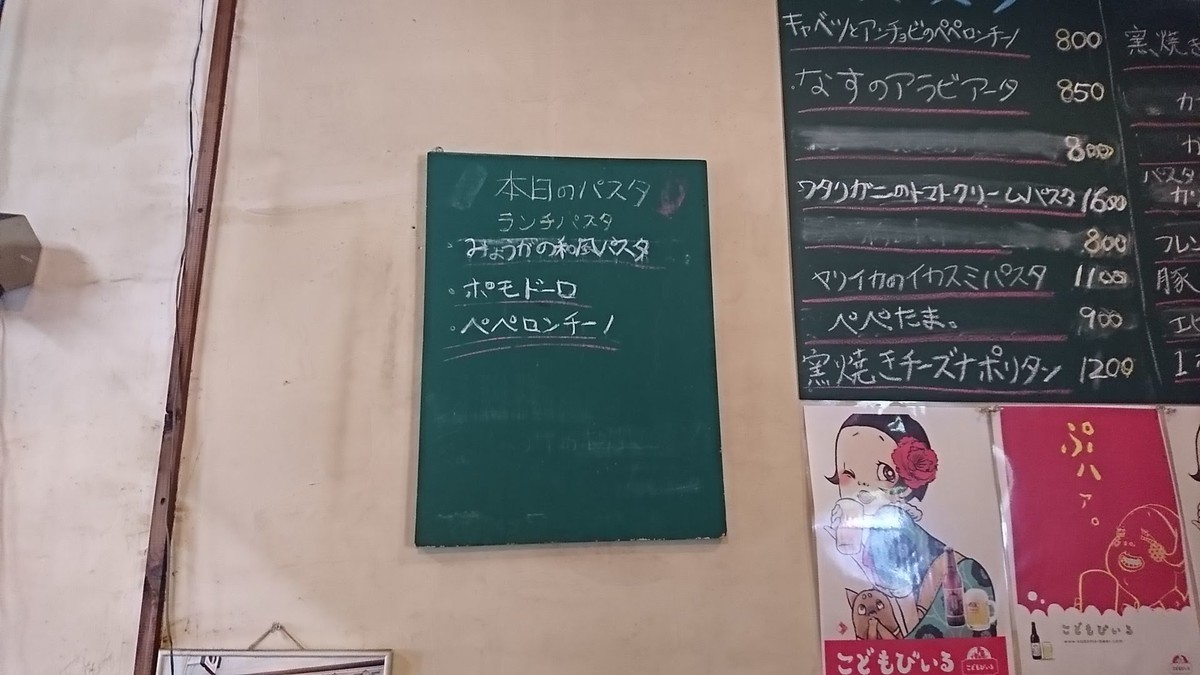 本日のパスタ
ランチパスタ
みょうがの和風パスタ
・ポモドーロ
・ペペロンチーノ
キャベツとアンチョビのペペロンチーノ 800
・なすのアラビアータ 850
800
ワタリガニのトマトクリームパスタ 1600
800
ヤリイカのイカスミパスタ 1100
ペペたま。 900
窯焼きチーズナポリタン 1200
窯焼き
カ
カ
パスタ
カリ
フレン
豚
エビ
こどもびいる
こどもびいる
ぷハァ。
こどもびいる